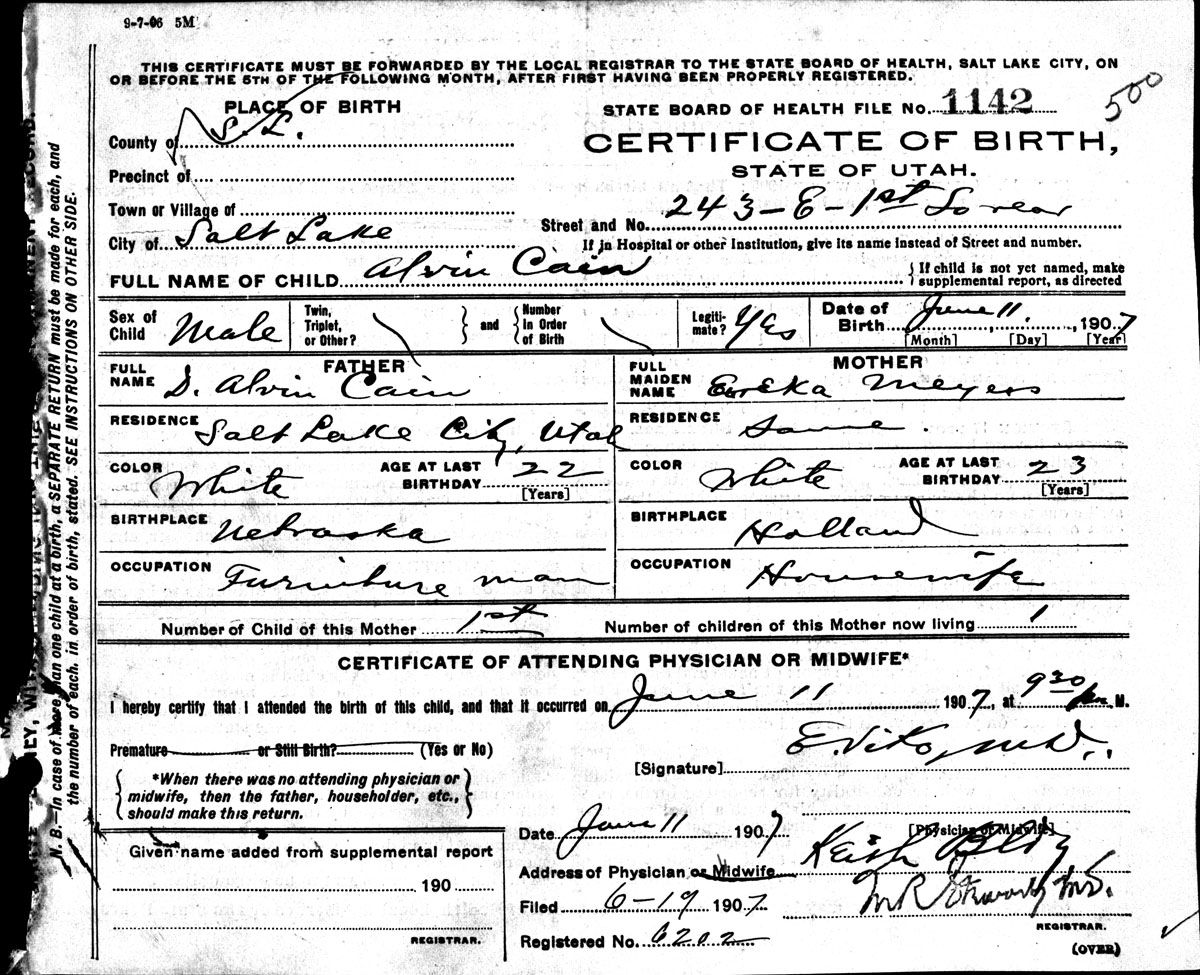 9-7-06 5M
THIS CERTIFICATE MUST BE FORWARDED BY THE LOCAL REGISTRAR TO THE STATE BOARD OF HEALTH, SALT LAKE CITY, ON
OR BEFORE THE 5TH OF THE FOLLOWING MONTH, AFTER FIRST HAVING BEEN PROPERLY REGISTERED.
PLACE OF BIRTH
County of S. L.
Precinct of
Town or Village of
City of Salt Lake
STATE BOARD OF HEALTH FILE No. 1142
500
CERTIFICATE OF BIRTH,
STATE OF UTAH.
Street and No. 243-E-1st So rear
If in Hospital or other Institution, give its name instead of Street and number.
FULL NAME OF CHILD Alvin Cain
If child is not yet named, make
supplemental report, as directed
Sex of Child Male
Twin, Triplet, or Other?
and
Number in Order of Birth
Legiti-mate? Yes
Date of Birth June 11. , 1907
[Month] [Day] [Year]
FATHER
FULL NAME D. Alvin Cain
RESIDENCE Salt Lake City, Utah
COLOR White AGE AT LAST BIRTHDAY 22
[Years]
BIRTHPLACE Nebraska
OCCUPATION Furniture man
MOTHER
FULL MAIDEN NAME Meyers
RESIDENCE Same.
COLOR White AGE AT LAST BIRTHDAY 23
[Years]
BIRTHPLACE Holland
OCCUPATION Housewife
Number of Child of this Mother 1st Number of children of this Mother now living 1
CERTIFICATE OF ATTENDING PHYSICIAN OR MIDWIFE*
I hereby certify that I attended the birth of this child, and that it occurred on June 11 1907, at 9 30 M.
Premature or Still Birth? (Yes or No)
*When there was no attending physician or
midwife, then the father, householder, etc.,
should make this return.
[Signature] M.D.
[Physician or Midwife]
Given name added from supplemental report
190
REGISTRAR.
Date June 11 1907
Address of Physician or Midwife Keith Bldg
Filed 6-19 1907
Registered No. 6202
M.D.
REGISTRAR.
(OVER)
N. B.—In case of more than one child at a birth, a SEPARATE RETURN must be made for each, and
the number of each, in order of birth, stated. SEE INSTRUCTIONS ON OTHER SIDE.